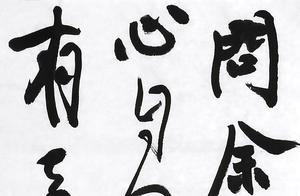 問余
心自
有天